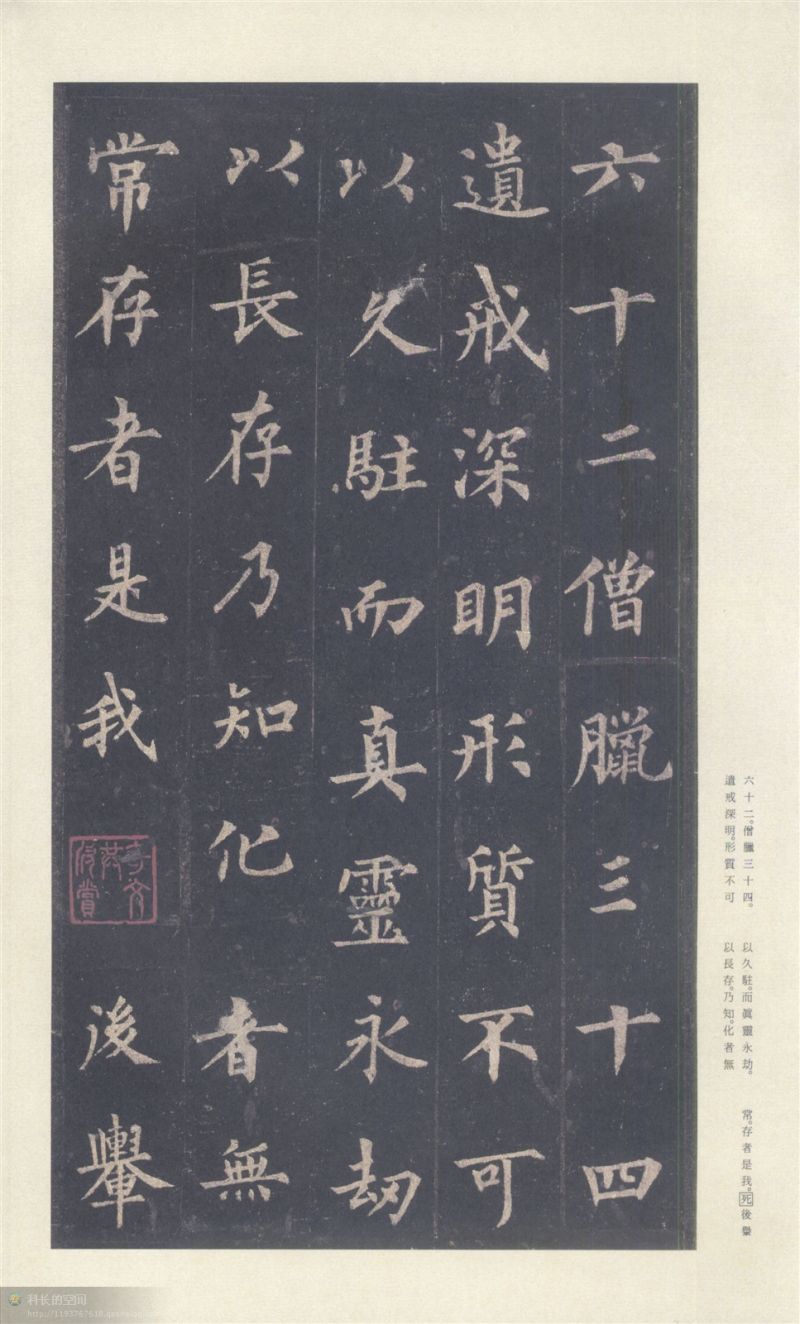 六十二僧臘三十四
遺戒深明形質不可
以久駐而真靈永劫
以長存乃知化者無
常存者是我
後轝
六十二。僧臘三十四。
遺戒深明。形質不可
以久駐。而眞靈永劫。
以長存。乃知。化者無
常。存者是我。死後轝
科长的空间